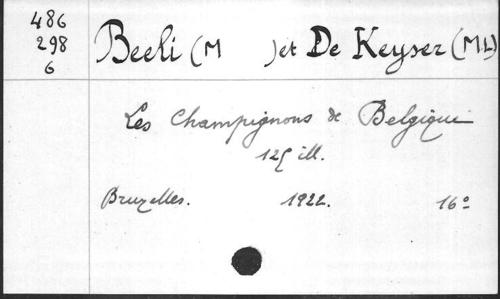 486
298
6
Beeli (M ) et De Keyser (M.L)
Les Champignons de Belgique
125 ill.
Bruxelles. 1922. 16°